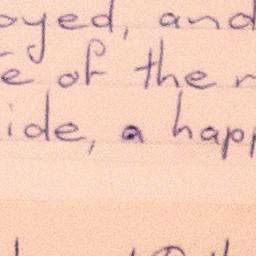 oyed, and
e of the r
ide, a happ